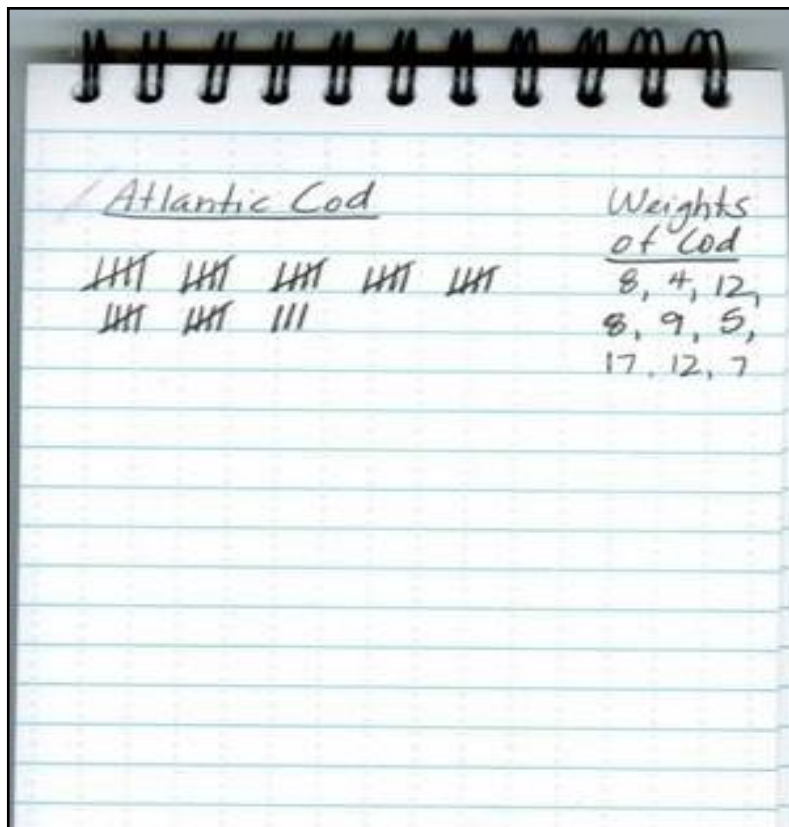 Atlantic Cod
Weights
of Cod
8, 4, 12,
8, 9, 5,
17, 12, 7